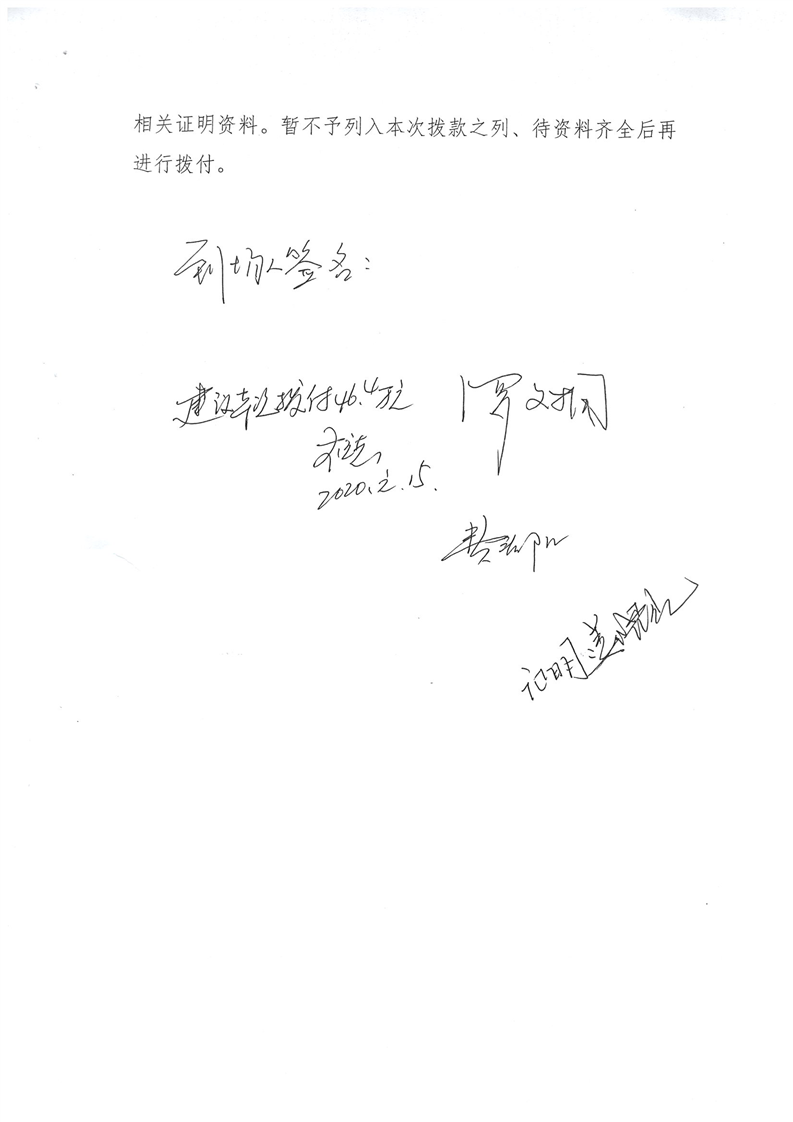 相关证明资料。暂不予列入本次拨款之列、待资料齐全后再
进行拨付。
到场人签名：
建议本次拨付46.4万元
2020.2.15.
证明